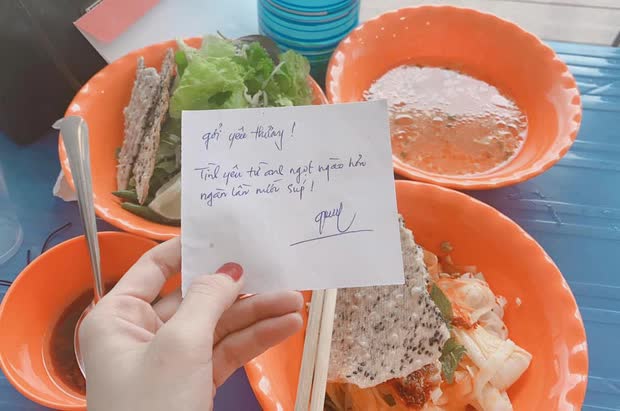 gửi yêu thương!
Tình yêu từ anh ngọt ngào hơn
ngàn lần miếng súp!